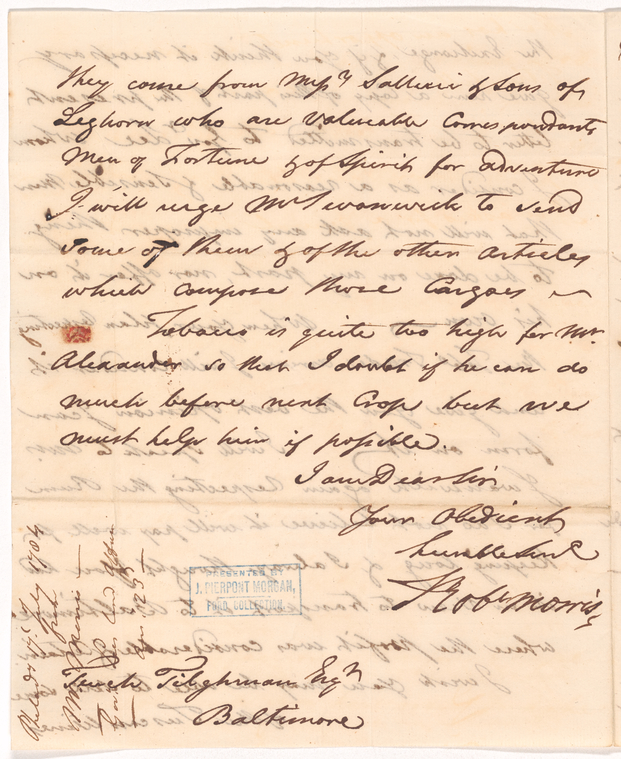 they come from Messrs Salluci & Sons of
Leghorn who are valueable Correspondants
Men of Fortune & of Spirit for adventure
I will urge Mr Swanwick to send
some of them & of the other articles
which compose those Cargoes
Tobacco is quite too high for Mr
Alexander so that I doubt if he can do
much before next Crop but we
must help him if possible
I am Dear Sir
Your Obedient
humble Servt
Robt Morris
PRESENTED BY
J. PIERPONT MORGAN,
COLLECTION
Tench Tilghman Esqr
Baltimore
Philada July 1784
Morris